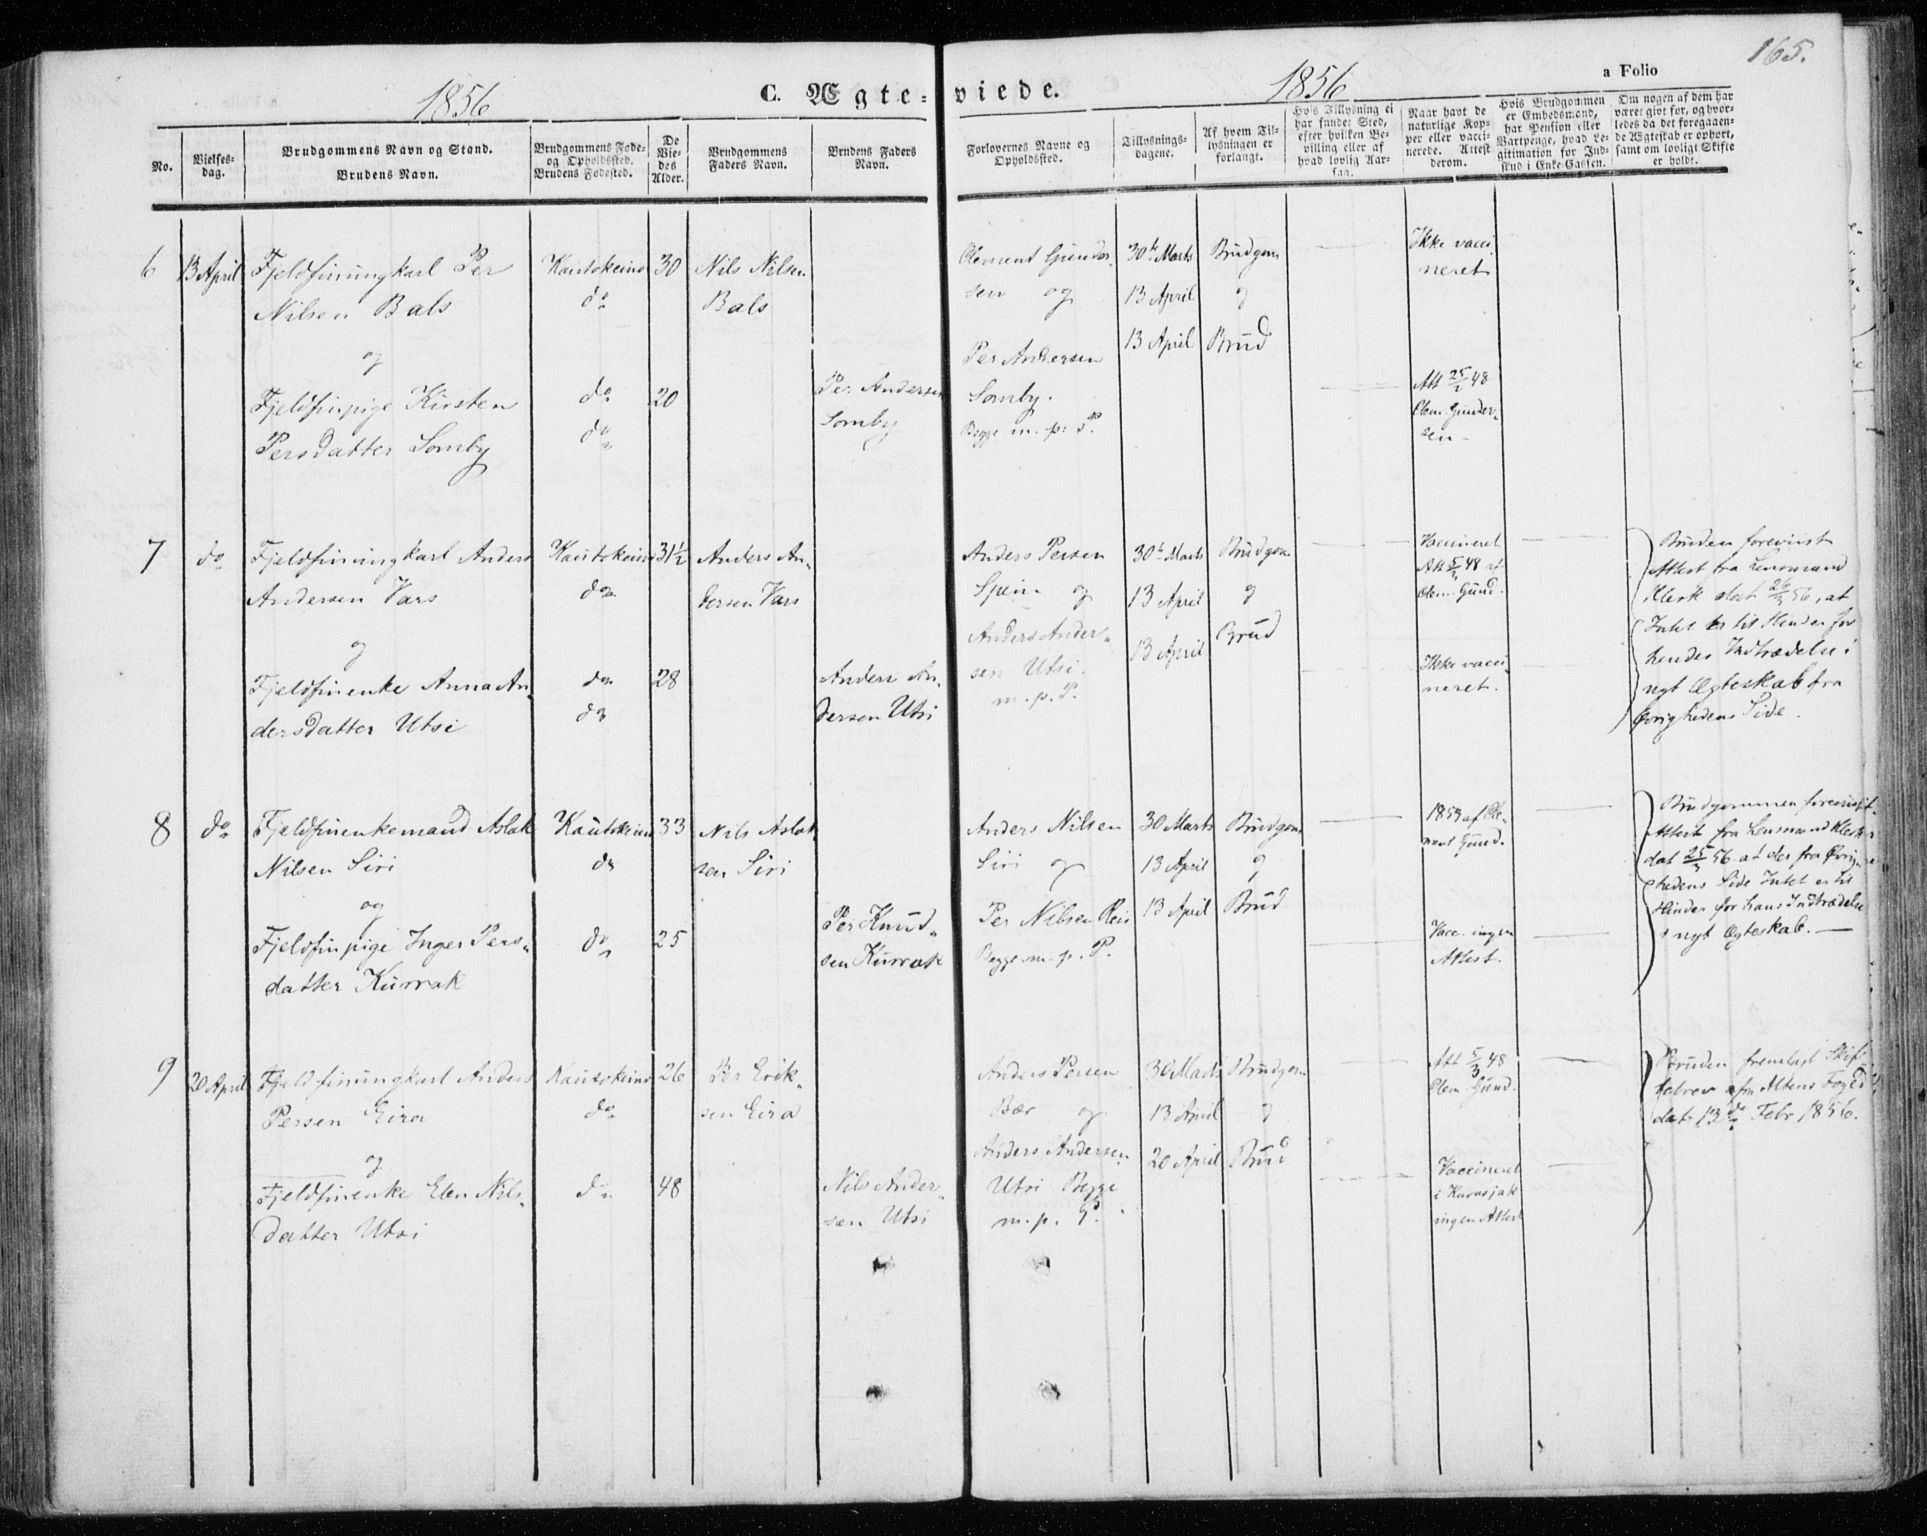 165.
1856
C. Ægte-viede.
1856
a Folio
No.
Vielses-
dag.
Brudgommens Navn og Stand.
Brudens Navn.
Brudgommens Føde-
og Opholdssted.
Brudens Fødested.
De
Vie-
des
Alder.
Brudgommens
Faders Navn.
Brudens Faders
Navn.
Forlovernes Navne og
Opholdssted.
Tillysnings-
dagene.
Af hvem Til-
lysningen er
forlangt.
Hvis Tillysning ei
har fundet Sted,
efter hvilken Be-
villing eller af
hvad lovlig Aar-
sag.
Naar havt de
naturlige Kop-
per eller vacci-
nerede. Attest
derom.
Hvis Brudgommen
er Embedsmand,
har Pension eller
Vartpenge, hvad Le-
gitimation for Ind-
skud i Enke-Cassen.
Om nogen af dem har
været givt før, og hvor-
ledes da det foregaaen-
de Ægteskab er ophørt,
samt om lovligt Skifte
er holdt.
6
13 April
Fjeldfinungkarl Per
Nilsen Bals
og
Fjeldfinpige Kirsten
Persdatter Somby
Kautokeino
do
do
do
30
20
Nils Nilsen
Bals
Per Andersen
Somby
Clement Gunder-
sen og
Per Andersen
Somby.
Begge m. p. P.
30te Marts
13 April
13 April
Brudgom
og
Brud
Ikke vacci
neret
Att 25/2 48
Clem. Gunder-
sen
7
do
Fjeldfinungkarl Anders
Andersen Vars
og
Fjeldfinenke Anna An-
dersdatter Utsi
Kautokeino
do
do
do
31½
28
Anders An-
dersen Vars
Anders An-
dersen Utsi
Anders Persen
Spein og
Anders Ander-
sen Utsi.
m. p. P.
30te Marts
13 April
13 April
Brudgom
og
Brud
Vaccineret
Att 5/3 48 af
Clem. Gund.
Ikke vacci
neret.
Bruden foreviist
Attest fra Lensmand
Klerk dat 26/3 56, at
Intet er til Hinder for
hendes Indtrædelse i
nyt Ægteskab fra
Øvrighedens Side.
8
do
Fjeldfinenkemand Aslak
Nilsen Siri
og
Fjeldfinpige Inger Pers-
datter Kurrak
Kautokeino
do
do
33
25
Nils Aslak-
sen Siri
Per Knud-
sen Kurrak
Anders Nilsen
Siri og
Per Nilsen Rein
Begge m. p. P.
30 Marts
13 April
13 April
Brudgom
og
Brud
1853 af Cle-
ment Gund.
Vacc. ingen
Attest.
Brudgommen foreviist
Attest fra Lensmand Klerk
dat 25/3 56 at der fra Øvrig-
hedens Side Intet er til
Hinder for hans Indtrædelse
i nyt Ægteskab.
9
20 April
Fjeldfinungkarl Anders
Persen Eira
og
Fjeldfinenke Elen Nils-
datter Utsi
Kautokeino
do
do
26
48
Per Erik-
sen Eira
Nils Ander-
sen Utsi
Anders Persen
Bær og
Anders Andersen
Utsi Begge
m. p. P.
30 Marts
13 April
20 April
Brudgom
og
Brud
Att 5/3 48
Clem. Gund.
Vaccineret
i Karasjok
ingen Attest
Bruden fremlagt Skif-
tebrev fra Altens Foged
dat 13de Febr 1856.